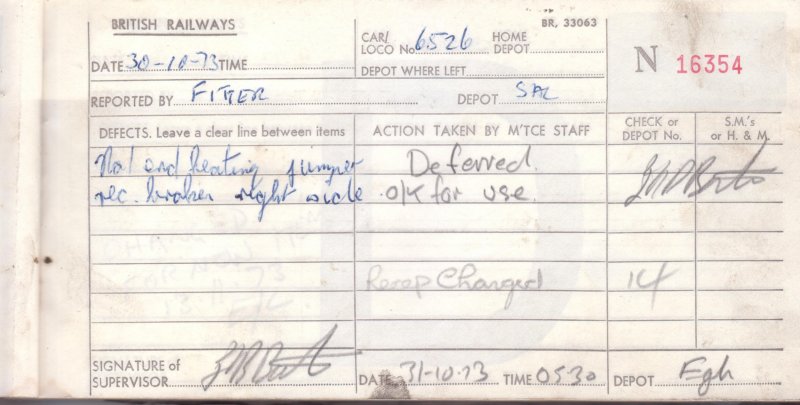 BRITISH RAILWAYS
BR, 33063
CAR/
LOCO No. 6526 HOME
DEPOT
N 16354
DATE 30-10-73 TIME
DEPOT WHERE LEFT
REPORTED BY FITTER DEPOT SAL
DEFECTS. Leave a clear line between items
ACTION TAKEN BY M'TCE STAFF
CHECK or
DEPOT No.
S.M.'s
or H. & M.
No 1 end heating jumper Deferred.
rec. broken right side O/K for use.
Recep Changed 14
SIGNATURE of
SUPERVISOR
DATE 31-10-73 TIME 0530 DEPOT Egh